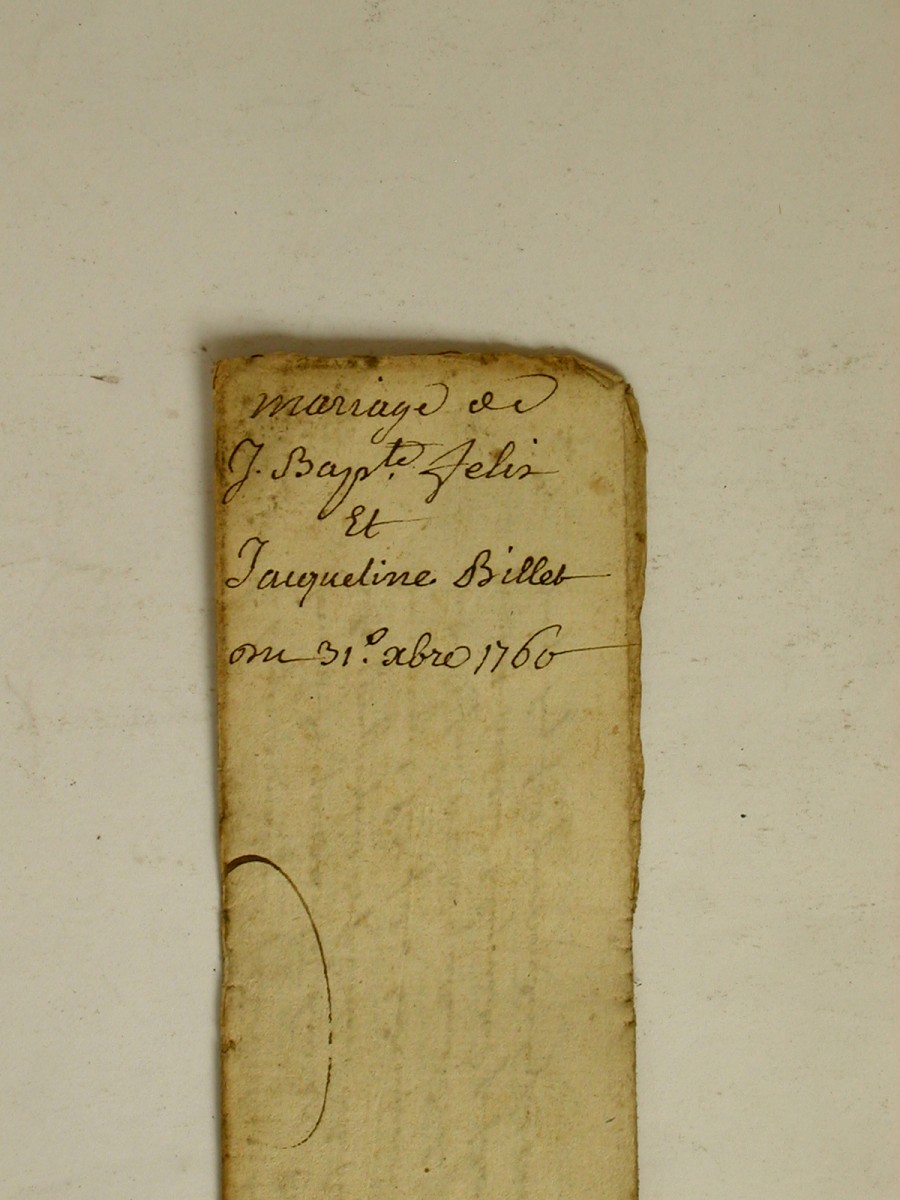 mariage de
J. Bapte. felix
Et
Jacqueline Billet
du 31e. xbre 1760